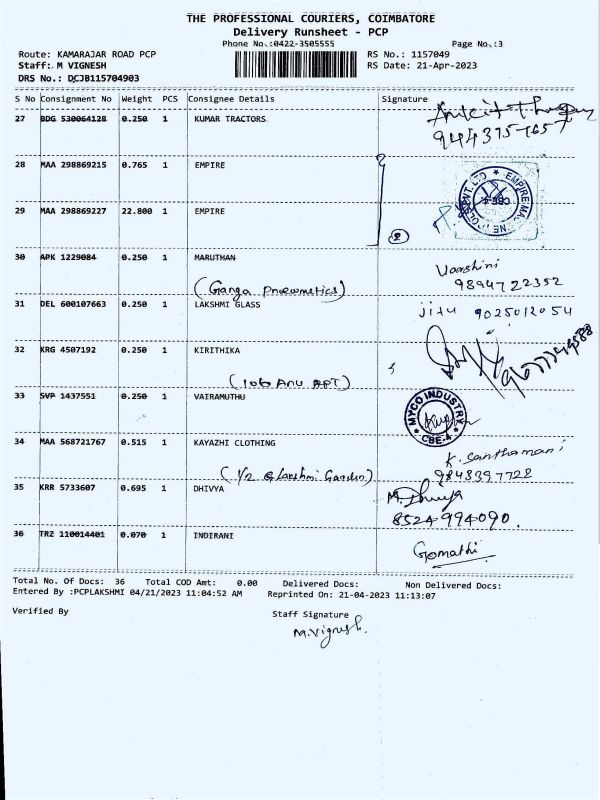 THE PROFESSIONAL COURIERS, COIMBATORE
Delivery Runsheet - PCP
Phone No.:0422-3505555 Page No.:3
Route: KAMARAJAR ROAD PCP RS No.: 1157049
Staff: M VIGNESH RS Date: 21-Apr-2023
DRS No.: DCJB115704903
S No Consignment No Weight PCS Consignee Details Signature
27 BDG 530064128 0.250 1 KUMAR TRACTORS
28 MAA 298869215 0.765 1 EMPIRE
29 MAA 298869227 22.800 1 EMPIRE
2
30 APK 1229084 0.250 1 MARUTHAN Vaarshini
9894722352
(Ganga Pneumetics)
31 DEL 600107663 0.250 1 LAKSHMI GLASS jitu 9025012054
32 KRG 4507192 0.250 1 KIRITHIKA
(106 Anu APT)
33 SVP 1437551 0.250 1 VAIRAMUTHU MYCO INDUSTRY
CBE-4
34 MAA 568721767 0.515 1 KAYAZHI CLOTHING K. Santhamani
(1/2 G Lakshmi Garden) 9843397728
35 KRR 5733607 0.695 1 DHIVYA
8524994090.
36 TRZ 110014401 0.070 1 INDIRANI Gomathi
Total No. Of Docs: 36 Total COD Amt: 0.00 Delivered Docs: Non Delivered Docs:
Entered By :PCPLAKSHMI 04/21/2023 11:04:52 AM Reprinted On: 21-04-2023 11:13:07
Verified By Staff Signature
M.Vignesh.